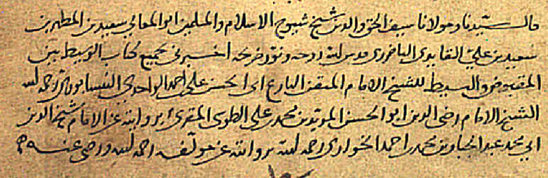 قال سيدنا ومولانا سيف الحق والدين شيخ شيوخ الاسلام والمسلمين ابو المعالي سعيد بن المطهر بن
سعيد بن علي القايدي الباخرزي قدس الله روحه ونور ضريحه اخبرني بجميع كتاب الوسيط بين
المقبوض والبسيط للشيخ الامام المفسر البارع ابي الحسن علي بن احمد الواحدي النيسابوري رحمه الله
الشيخ الامام رضي الدين ابو الحسن المويد بن محمد بن علي الطوسي المقري بروايته عن الامام شيخ الدين
ابي محمد عبد الجبار بن محمد بن احمد الخواري رحمه الله بروايته عن مولفه رحمه الله ورضي عنه